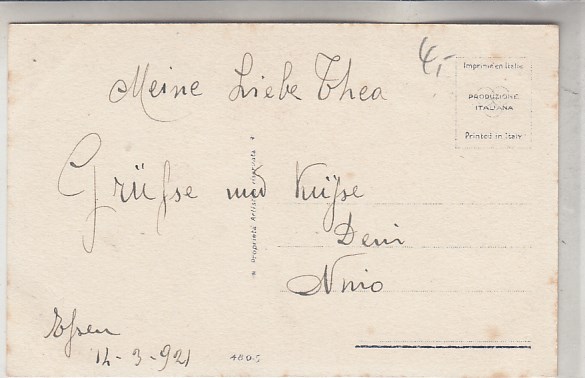 4,-
Imprimé en Italie
PRODUZIONE
ITALIANA
Printed in Italy
Meine Liebe Thea
Grüsse und Küsse
Deni
Nnio
Proprietà Artistica Riservata
Essen
14-3-921
480-5